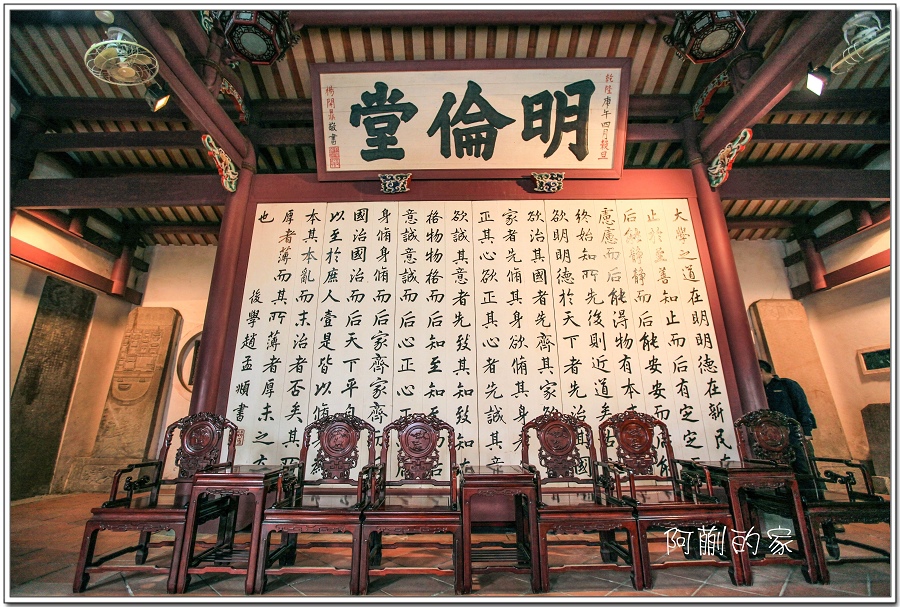 明倫堂
乾隆庚午四月穀旦
楊開鼎敬書
大學之道在明明德在新民在
止於至善知止而后有定定
后能靜靜而后能安安而
慮慮而后能得物有本
終始知所先後則近道矣
欲明明德於天下者先治其國
欲治其國者先齊其家欲
家者先脩其身欲脩其身
正其心欲正其心者先誠其意
欲誠其意者先致其知致知在
格物物格而后知至知至
意誠意誠而后心正心正而后
身脩身脩而后家齊家齊
國治國治而后天下平自
以至於庶人壹是皆以脩
本其本亂而末治者否矣其
厚者薄而其所薄者厚未之
也
後學趙孟頫書
阿蒯的家